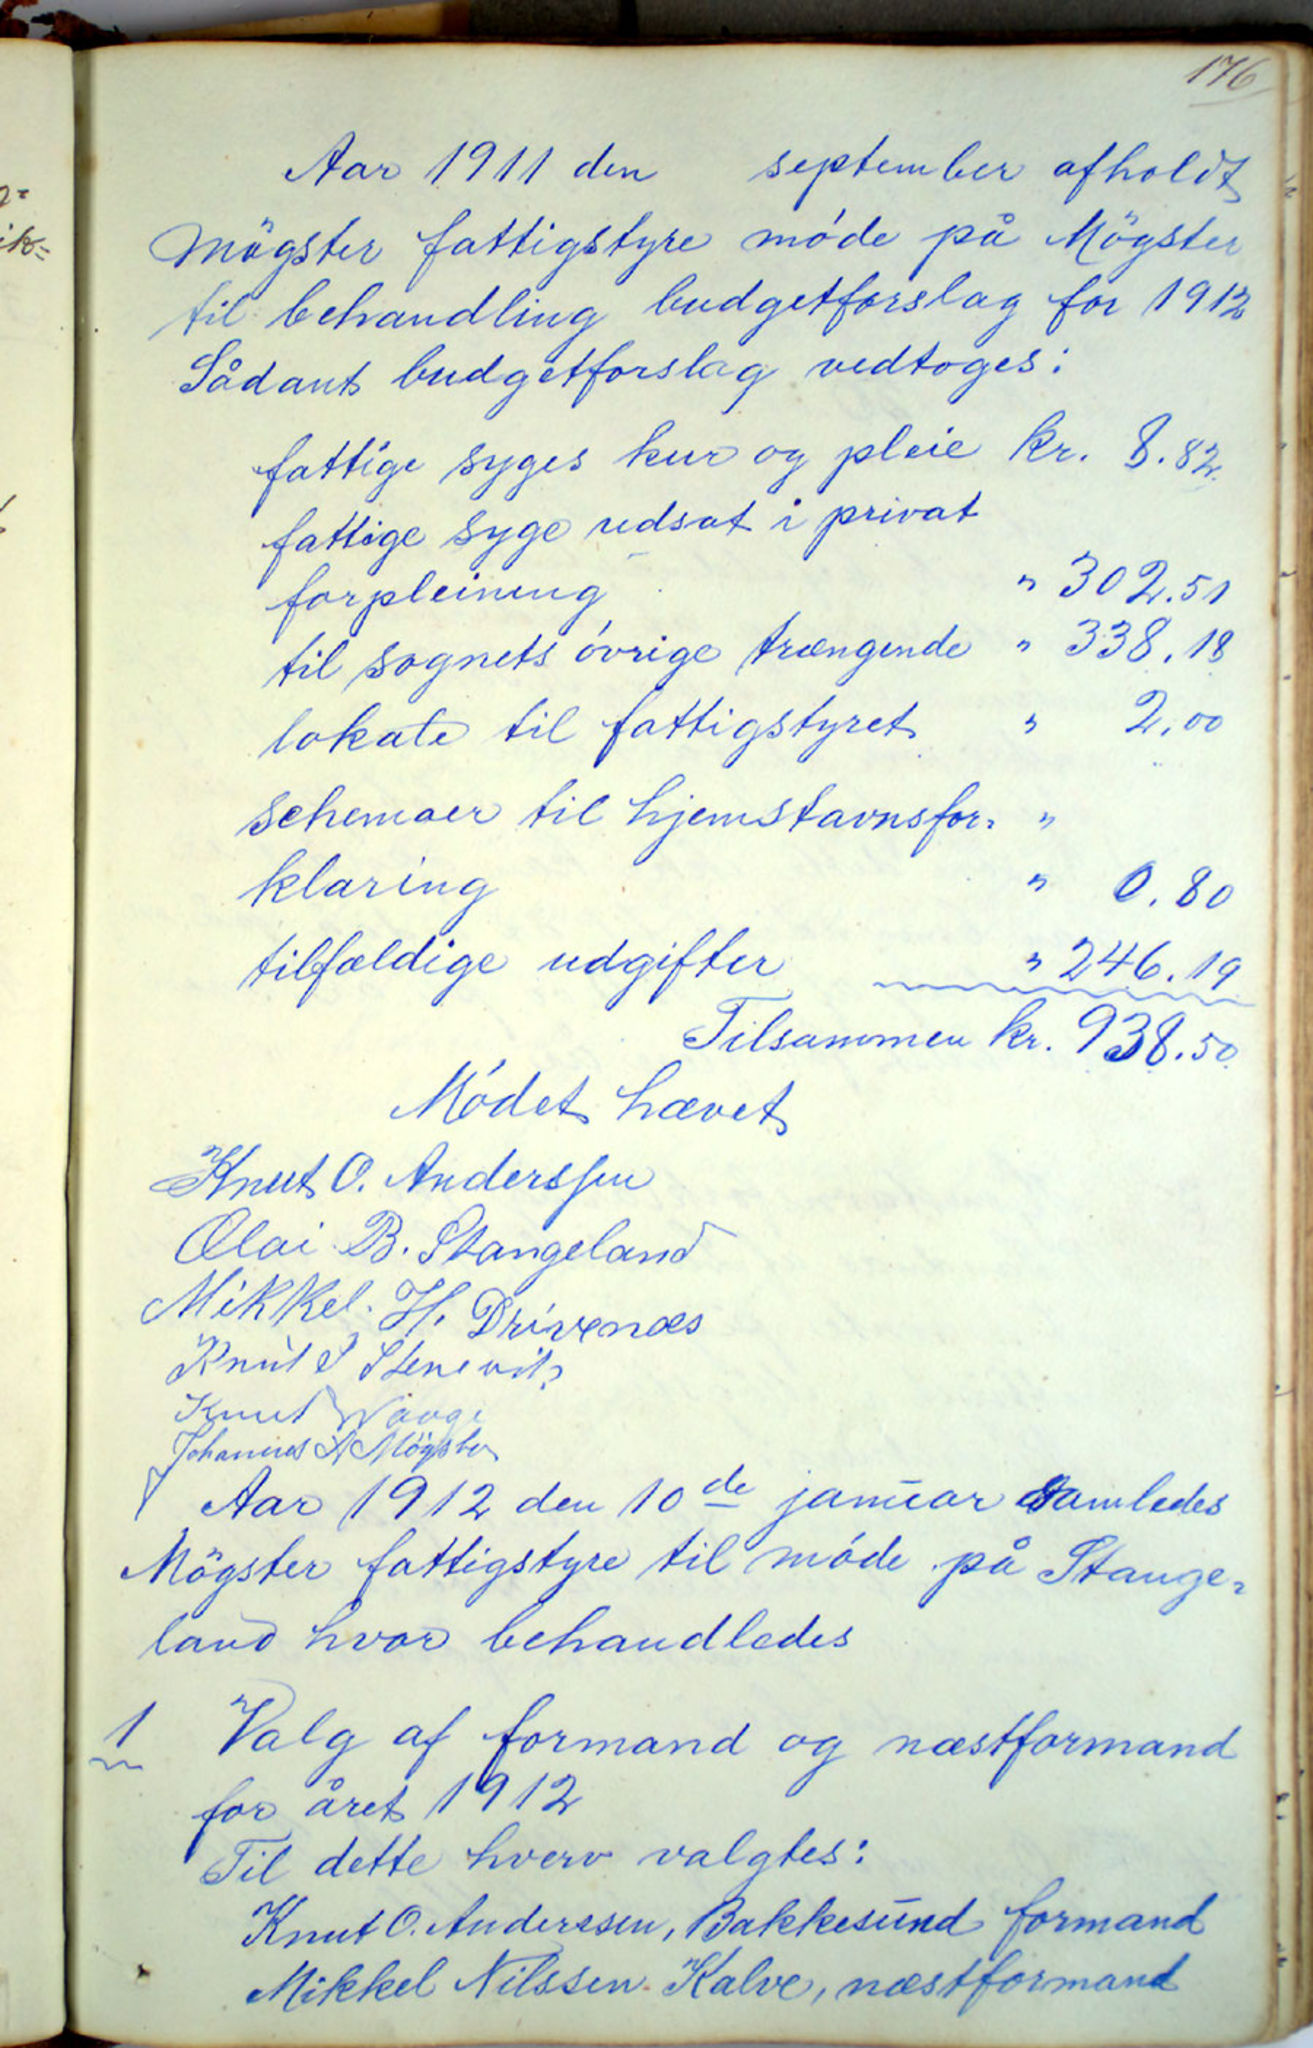 176
Aar 1911 den september afholdt
Mögster fattigstyre møde på Mögster
til behandling budgetforslag for 1912
Sådant budgetforslag vedtoges:
fattige syges kur og pleie kr. 8.82
fattige syge udsat i privat
forpleining " 302.51
til sognets øvrige trængende " 338.18
lokale til fattigstyret " 2.00
schemaer til hjemstavnsfor= "
klaring " 0.80
tilfældige udgifter " 246.19
Tilsammen kr. 938.50
Mødet hævet
Knut O. Anderssen
Olai B. Stangeland
Mikkel. H. Drivenæs
Knut S Stenevik
Knut Waage
Johannes A Mögster
Aar 1912 den 10de januar samledes
Mögster fattigstyre til møde på Stange=
land hvor behandledes
1 Valg af formand og næstformand
for året 1912
Til dette hverv valgtes:
Knut O. Anderssen, Bakkesund formand
Mikkel Nilssen Kalve, næstformand